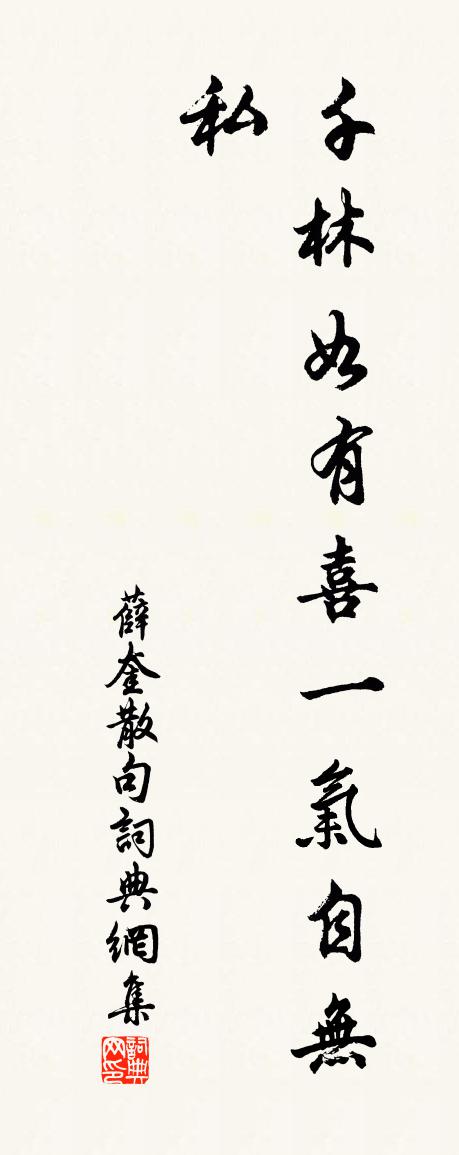 千林如有喜一氣自無
私
薛奎散句詞典網集
詞典网印